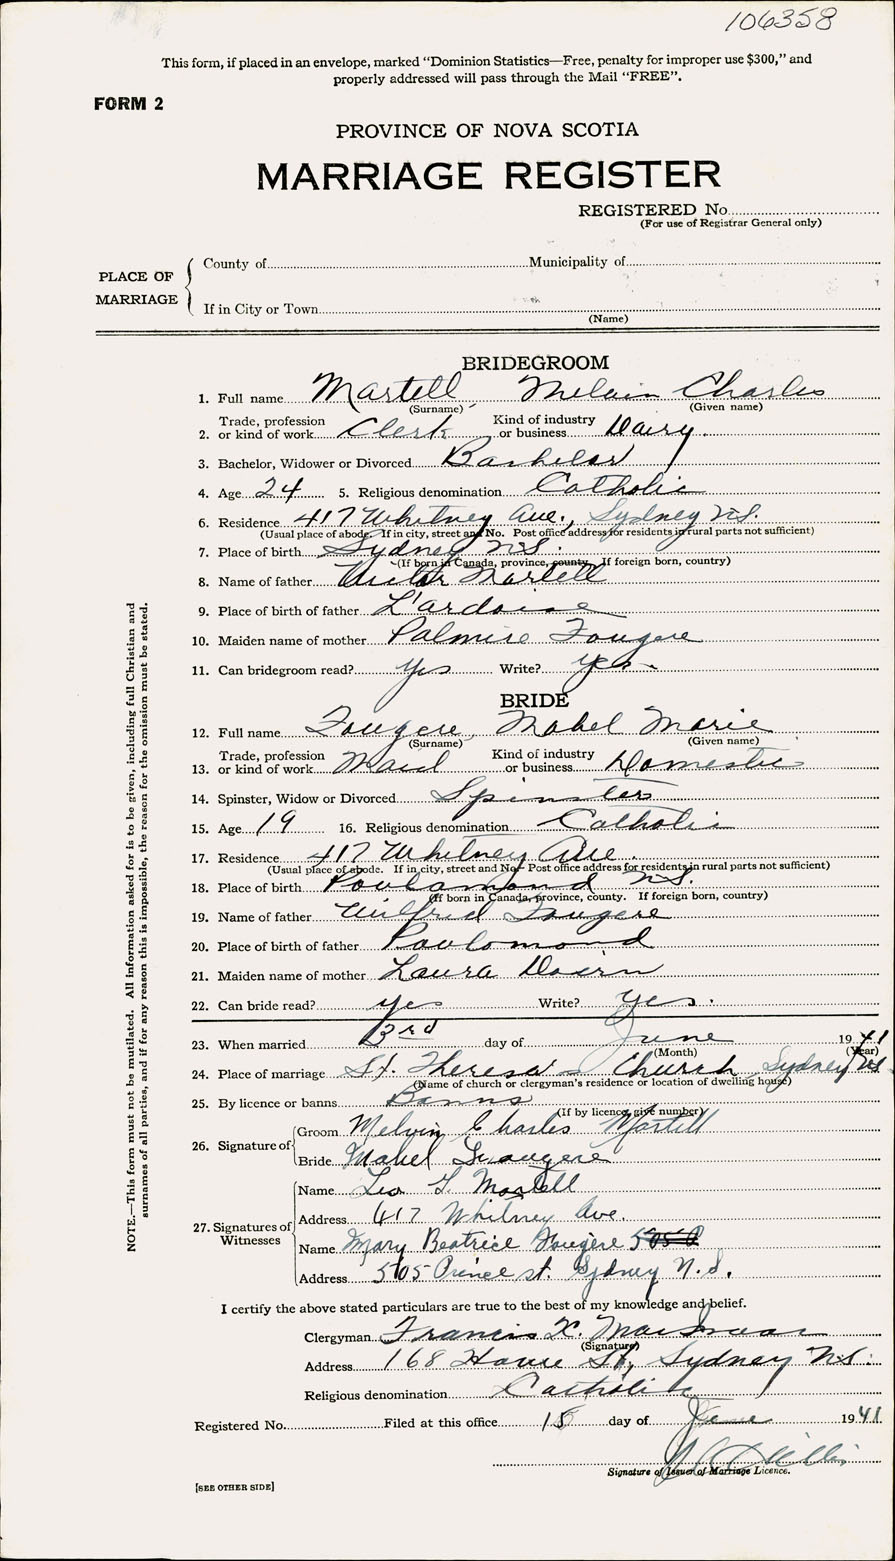 106358
This form, if placed in an envelope, marked "Dominion Statistics—Free, penalty for improper use $300," and
properly addressed will pass through the Mail "FREE".
FORM 2
PROVINCE OF NOVA SCOTIA
MARRIAGE REGISTER
REGISTERED No.
(For use of Registrar General only)
PLACE OF MARRIAGE
County of Municipality of
If in City or Town
(Name)
BRIDEGROOM
1. Full name Martell, Melvin Charles
(Surname) (Given name)
2. Trade, profession or kind of work Clerk Kind of industry or business Dairy.
3. Bachelor, Widower or Divorced Bachelor
4. Age 24 5. Religious denomination Catholic
6. Residence 417 Whitney Ave., Sydney N.S.
(Usual place of abode. If in city, street and No. Post office address for residents in rural parts not sufficient)
7. Place of birth Sydney N.S.
(If born in Canada, province, county. If foreign born, country)
8. Name of father Victor Martell
9. Place of birth of father L'ardoise
10. Maiden name of mother Palmire Fougere
11. Can bridegroom read? yes Write? yes
BRIDE
12. Full name Fougere, Mabel Marie
(Surname) (Given name)
13. Trade, profession or kind of work Maid Kind of industry or business Domestic
14. Spinster, Widow or Divorced Spinster
15. Age 19 16. Religious denomination Catholic
17. Residence 417 Whitney Ave.
(Usual place of abode. If in city, street and No. Post office address for residents in rural parts not sufficient)
18. Place of birth Poulamond N.S.
(If born in Canada, province, county. If foreign born, country)
19. Name of father Wilfred Fougere
20. Place of birth of father Poulomond
21. Maiden name of mother Laura
22. Can bride read? yes Write? yes.
23. When married 3rd day of June 1941
(Month) (Year)
24. Place of marriage St. Theresa's Church, Sydney N.S.
(Name of church or clergyman's residence or location of dwelling house)
25. By licence or banns Banns
(If by licence, give number)
26. Signature of
Groom Melvin Charles Martell
Bride Mabel Fougere
27. Signatures of Witnesses
Name Leo Martell
Address 417 Whitney Ave.
Name Mary Beatrice Fougère
Address 505 Prince st. Sydney N.S.
I certify the above stated particulars are true to the best of my knowledge and belief.
Clergyman Francis X.
(Signature)
Address 168 St, Sydney N.S.
Religious denomination Catholic
Registered No. Filed at this office 15 day of June 1941
Signature of Issuer of Marriage Licence.
[SEE OTHER SIDE]
NOTE.—This form must not be mutilated. All information asked for is to be given, including full Christian and
surnames of all parties, and if for any reason this is impossible, the reason for the omission must be stated.